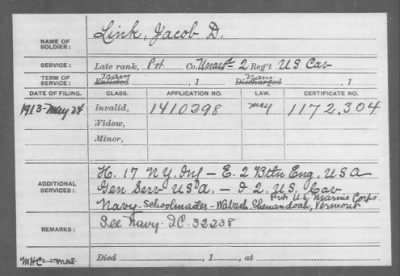 NAME OF SOLDIER: Link, Jacob D.
SERVICE: Late rank, Pvt Co. Unasst- 2 Reg't U.S. Cav
TERM OF SERVICE: Enlisted , 1 Discharged , 1
DATE OF FILING. CLASS. APPLICATION NO. LAW. CERTIFICATE NO.
1913-May 24 Invalid, 1410298 May 1172.304
Widow,
Minor,
ADDITIONAL SERVICES: H. 17 N.Y. Inf - E. 2 Battn Eng. U.S.A
Gen Serv U.S.A. - 2. U.S. Cav
Pvt U.S. Marine Corps.
Navy - Schoolmaster - Wabash, Shenandoah, Vermont
REMARKS: See Navy. 32238
Died , 1 , at